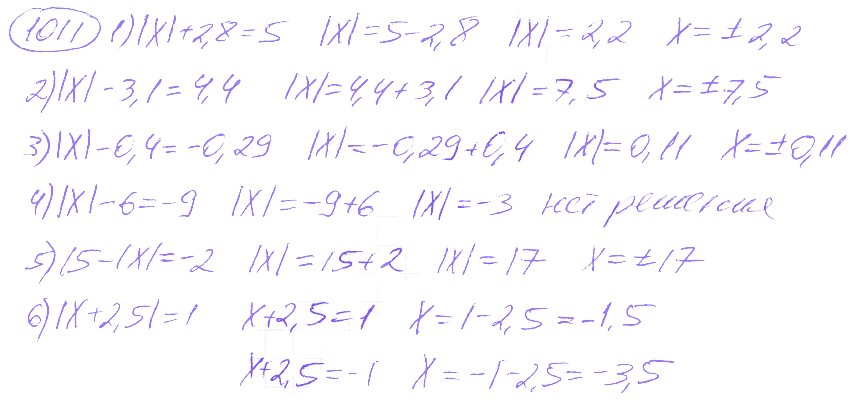 1011 1) |X|+2,8=5 |X|=5-2,8 |X|=2,2 X=±2,2
2) |X|-3,1=4,4 |X|=4,4+3,1 |X|=7,5 X=±7,5
3) |X|-0,4=-0,29 |X|=-0,29+0,4 |X|=0,11 X=±0,11
4) |X|-6=-9 |X|=-9+6 |X|=-3 нет решения
5) 15-|X|=-2 |X|=15+2 |X|=17 X=±17
6) |X+2,5|=1 X+2,5=1 X=1-2,5=-1,5
X+2,5=-1 X=-1-2,5=-3,5